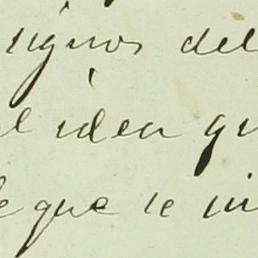 signos del
l idea qu
e que le in